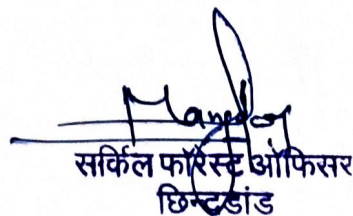 सर्किल फॉरेस्ट ऑफिसर
छिन्दडांड